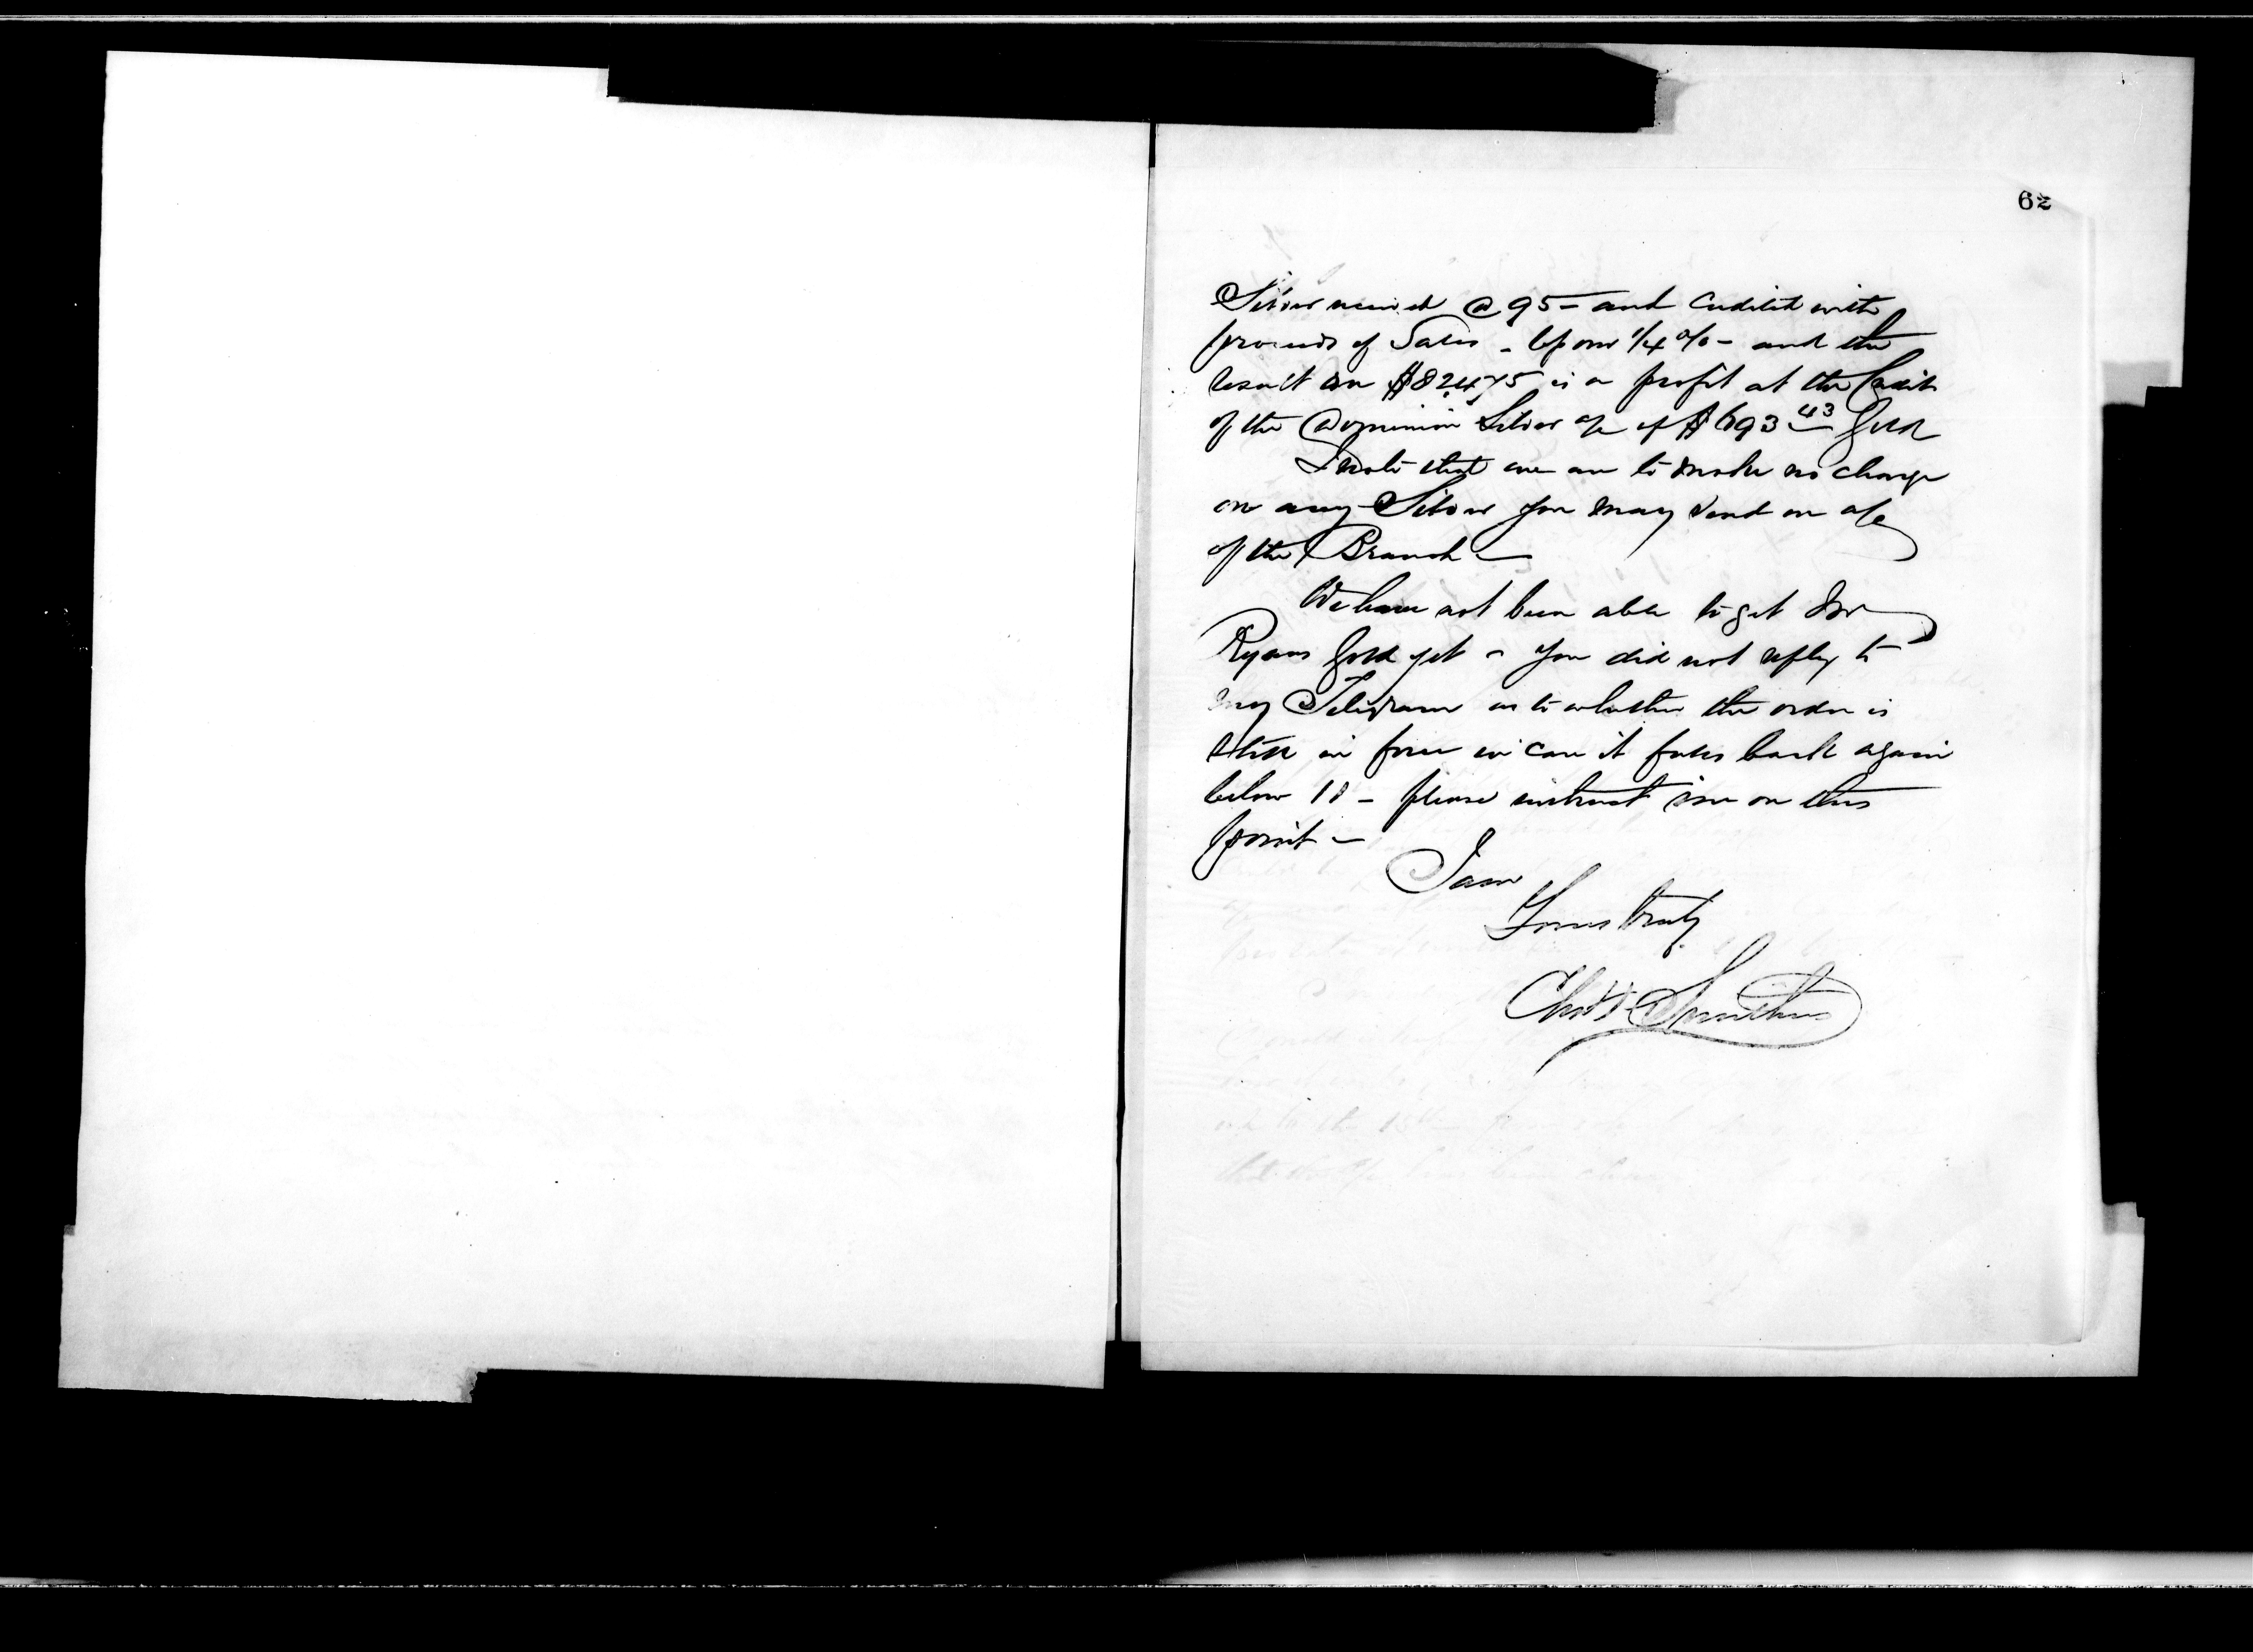 62
Silver received @ 95 - and credited with
proceeds of Sales - less our 1/4 % - and the
result on $82475 is a profit at the Credit
of the Dominion Silver a/c of $693 43 Gold
I note that we are to make no charge
on any Silver you may send on a/c
of the Branch -
We have not been able to get Mr
Ryans Gold yet - you did not reply to
my Telegram as to whether the order is
still in force in case it falls back again
below 11 - please instruct me on this
point -
I am
Yours truly
Chas F Smithers